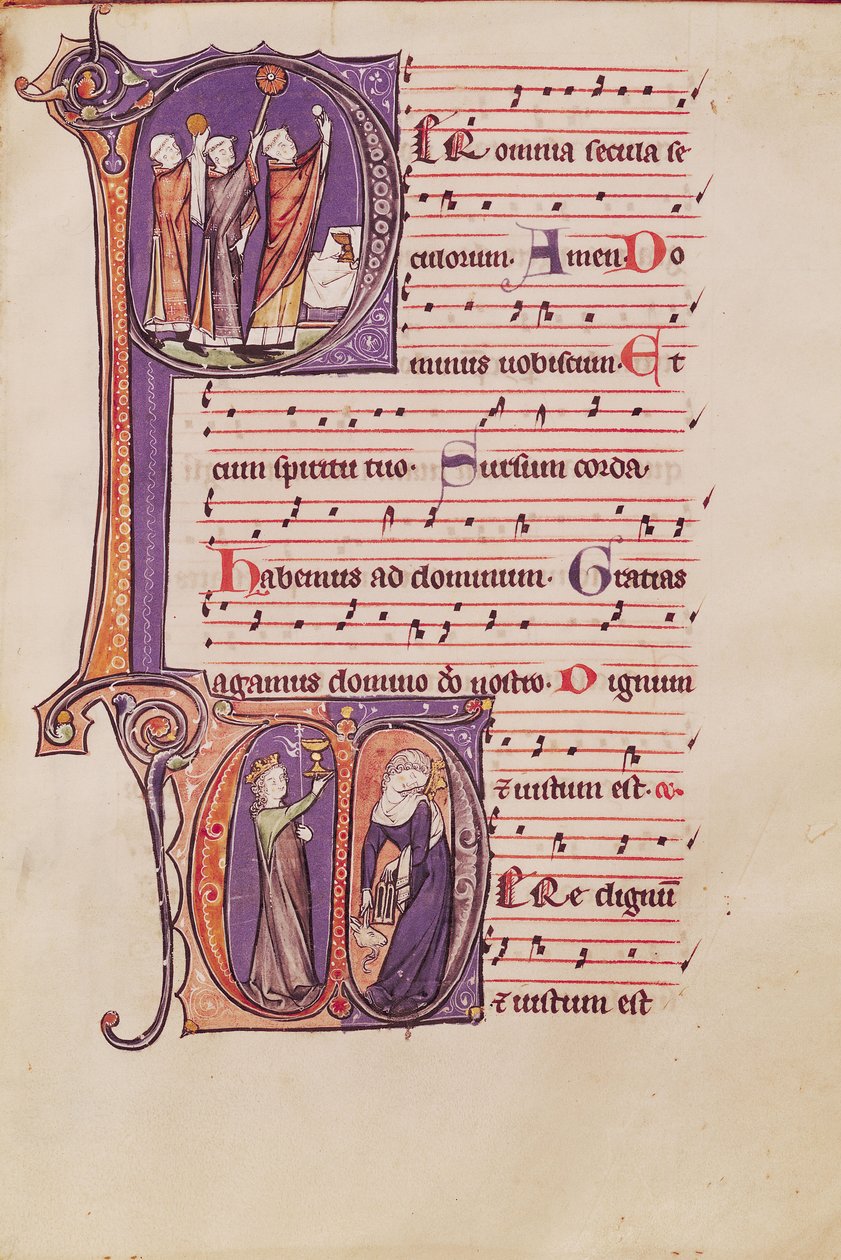 PER omnia secula se
culorum. Amen. Do
minus uobiscum. Et
cum spiritu tuo. Sursum corda.
habemus ad dominum. Gratias
agamus domino dō nostro. Dignum
⁊ iustum est.
VERe dignū
⁊ iustum est